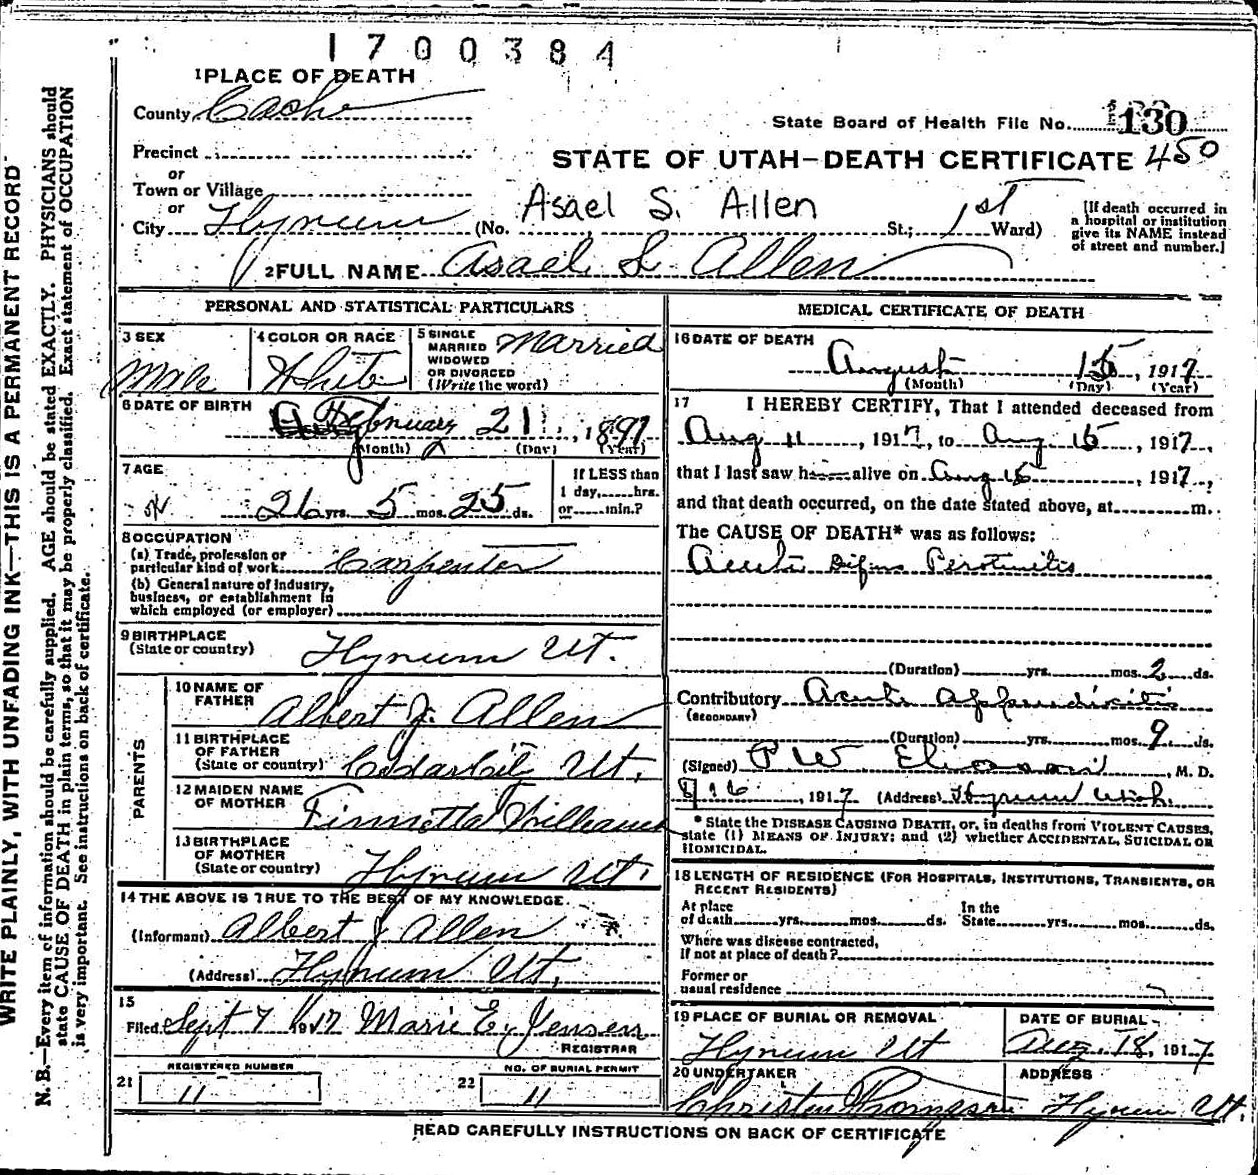 1700384
1 PLACE OF DEATH
County Cache
State Board of Health File No. 130
Precinct
450
STATE OF UTAH—DEATH CERTIFICATE
or
Town or Village
or
Asael S. Allen
City Hyrum (No. St.; 1st Ward)
[If death occurred in
a hospital or institution
give its NAME instead
of street and number.]
2 FULL NAME Asael S. Allen
PERSONAL AND STATISTICAL PARTICULARS
3 SEX
Male
4 COLOR OR RACE
White
5 SINGLE
MARRIED
WIDOWED
OR DIVORCED
(Write the word)
Married
6 DATE OF BIRTH
February 21, 1891
(Month) (Day) (Year)
7 AGE
26 yrs. 5 mos. 25 ds.
If LESS than
1 day, hrs.
or min.?
8 OCCUPATION
(a) Trade, profession or
particular kind of work Carpenter
(b) General nature of industry,
business, or establishment in
which employed (or employer)
9 BIRTHPLACE
(State or country) Hyrum Ut.
PARENTS
10 NAME OF
FATHER Albert J. Allen
11 BIRTHPLACE
OF FATHER
(State or country) Cedar City Ut.
12 MAIDEN NAME
OF MOTHER Williams
13 BIRTHPLACE
OF MOTHER
(State or country) Hyrum Ut.
14 THE ABOVE IS TRUE TO THE BEST OF MY KNOWLEDGE
(Informant) Albert J Allen
(Address) Hyrum Ut.
15
Filed Sept 7 1917 Marie E. Jensen
REGISTRAR
21 REGISTERED NUMBER
11
22 NO. OF BURIAL PERMIT
11
MEDICAL CERTIFICATE OF DEATH
16 DATE OF DEATH
August 15, 1917
(Month) (Day) (Year)
17 I HEREBY CERTIFY, That I attended deceased from
Aug 11, 1917, to Aug 15, 1917.
that I last saw him alive on Aug 15, 1917,
and that death occurred, on the date stated above, at m.
The CAUSE OF DEATH* was as follows:
Acute Difus Perotinitis
(Duration) yrs. mos. 2 ds.
Contributory Acute Appendicitis
(SECONDARY)
(Duration) yrs. mos. 9 ds.
(Signed) P W Eliason, M. D.
8/16, 1917 (Address) Hyrum Utah.
* State the DISEASE CAUSING DEATH, or, in deaths from VIOLENT CAUSES,
state (1) MEANS OF INJURY; and (2) whether ACCIDENTAL, SUICIDAL OR
HOMICIDAL.
18 LENGTH OF RESIDENCE (FOR HOSPITALS, INSTITUTIONS, TRANSIENTS, OR
RECENT RESIDENTS)
At place
of death yrs. mos. ds.
In the
State yrs. mos. ds.
Where was disease contracted,
if not at place of death?
Former or
usual residence
19 PLACE OF BURIAL OR REMOVAL
Hyrum Ut
DATE OF BURIAL
Aug. 18, 1917
20 UNDERTAKER
ADDRESS
Hyrum Ut.
READ CAREFULLY INSTRUCTIONS ON BACK OF CERTIFICATE
WRITE PLAINLY, WITH UNFADING INK—THIS IS A PERMANENT RECORD
N. B.—Every item of information should be carefully supplied. AGE should be stated EXACTLY. PHYSICIANS should
state CAUSE OF DEATH in plain terms, so that it may be properly classified. Exact statement of OCCUPATION
is very important. See instructions on back of certificate.